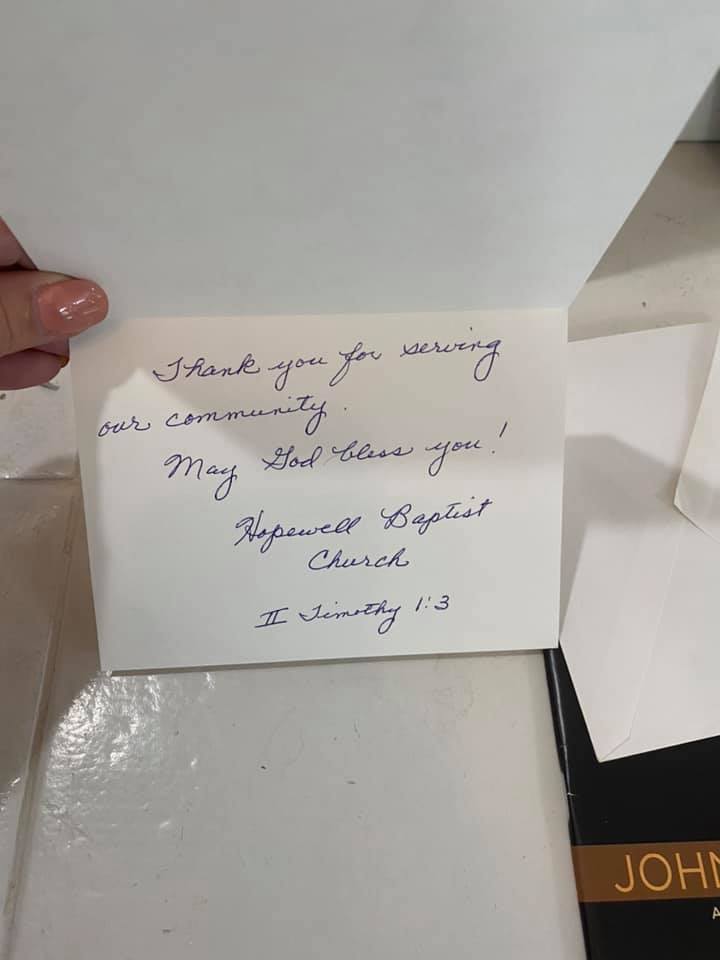 Thank you for serving
our community.
May God bless you!
Hopewell Baptist
Church
II Timothy 1:3
JOHN
A